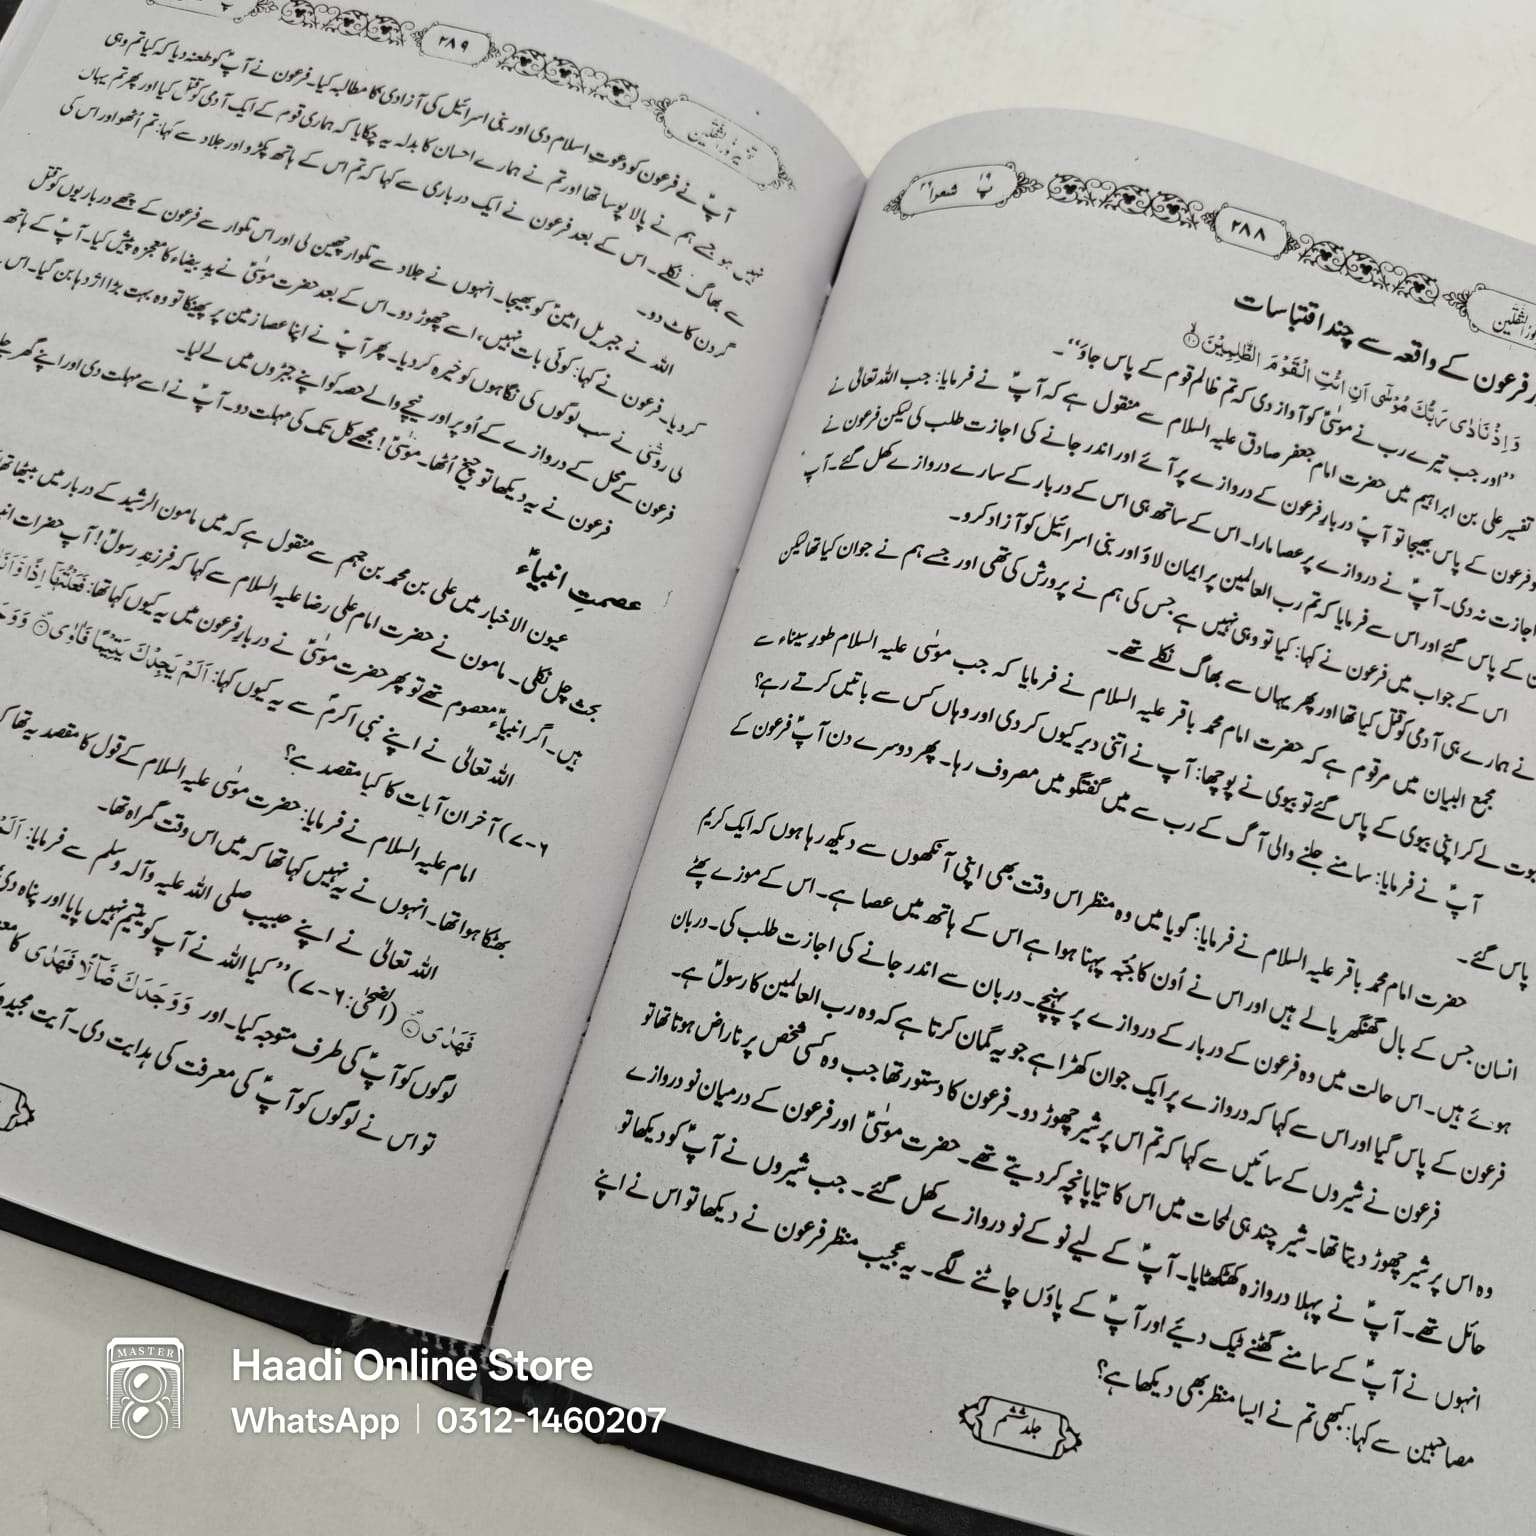 پ ۱۹ شعراء
۲۸۸
نورالثقلین
فرعون کے واقعہ سے چند اقتباسات
وَاِذْ نَادٰی رَبُّكَ مُوْسٰۤی اَنِ ائْتِ الْقَوْمَ الظّٰلِمِیْنَ ۙ
’’اور جب تیرے رب نے موسٰیؑ کو آواز دی کہ تم ظالم قوم کے پاس جاؤ‘‘۔
تفسیر علی بن ابراہیم میں حضرت امام جعفر صادق علیہ السلام سے منقول ہے کہ آپؑ نے فرمایا: جب اللہ تعالٰی نے
فرعون کے پاس بھیجا تو آپؑ دربارِ فرعون کے دروازے پر آئے اور اندر جانے کی اجازت طلب کی لیکن فرعون نے
اجازت نہ دی۔ آپؑ نے دروازے پر عصا مارا۔ اس کے ساتھ ہی اس کے دربار کے سارے دروازے کھل گئے۔ آپؑ
کے پاس گئے اور اس سے فرمایا کہ تم رب العالمین پر ایمان لاؤ اور بنی اسرائیل کو آزاد کرو۔
اس کے جواب میں فرعون نے کہا: کیا تو وہی نہیں ہے جس کی ہم نے پرورش کی تھی اور جسے ہم نے جوان کیا تھا لیکن
نے ہمارے ہی آدمی کو قتل کیا تھا اور پھر یہاں سے بھاگ نکلے تھے۔
مجمع البیان میں مرقوم ہے کہ حضرت امام محمد باقر علیہ السلام نے فرمایا کہ جب موسٰی علیہ السلام طورِ سیناء سے
لے کر اپنی بیوی کے پاس گئے تو بیوی نے پوچھا: آپ نے اتنی دیر کیوں کر دی اور وہاں کس سے باتیں کرتے رہے؟
آپؑ نے فرمایا: سامنے جلنے والی آگ کے رب سے میں گفتگو میں مصروف رہا۔ پھر دوسرے دن آپؑ فرعون کے
پاس گئے۔
حضرت امام محمد باقر علیہ السلام نے فرمایا: گویا میں وہ منظر اس وقت بھی اپنی آنکھوں سے دیکھ رہا ہوں کہ ایک کریم
انسان جس کے بال گھنگھریالے ہیں اور اس نے اُون کا جُبّہ پہنا ہوا ہے اس کے ہاتھ میں عصا ہے۔ اس کے موزے پھٹے
ہوئے ہیں۔ اس حالت میں وہ فرعون کے دربار کے دروازے پر پہنچے۔ دربان سے اندر جانے کی اجازت طلب کی۔ دربان
فرعون کے پاس گیا اور اس سے کہا کہ دروازے پر ایک جوان کھڑا ہے جو یہ گمان کرتا ہے کہ وہ رب العالمین کا رسولؑ ہے۔
فرعون نے شیروں کے سائیں سے کہا کہ تم اس پر شیر چھوڑ دو۔ فرعون کا دستور تھا جب وہ کسی شخص پر ناراض ہوتا تھا تو
وہ اس پر شیر چھوڑ دیتا تھا۔ شیر چند ہی لمحات میں اس کا تیاپانچہ کر دیتے تھے۔ حضرت موسٰیؑ اور فرعون کے درمیان نو دروازے
حائل تھے۔ آپؑ نے پہلا دروازہ کھٹکھٹایا۔ آپؑ کے لیے نو کے نو دروازے کھل گئے۔ جب شیروں نے آپؑ کو دیکھا تو
انہوں نے آپؑ کے سامنے گھٹنے ٹیک دیئے اور آپؑ کے پاؤں چاٹنے لگے۔ یہ عجیب منظر فرعون نے دیکھا تو اس نے اپنے
مصاحبین سے کہا: کبھی تم نے ایسا منظر بھی دیکھا ہے؟
جلد ششم
۲۸۹
تفسیر نورالثقلین
آپؑ نے فرعون کو دعوتِ اسلام دی اور بنی اسرائیل کی آزادی کا مطالبہ کیا۔ فرعون نے آپؑ کو طعنہ دیا کہ کیا تم وہی
نہیں ہو جسے ہم نے پالا پوسا تھا اور تم نے ہمارے احسان کا بدلہ یہ چکایا کہ ہماری قوم کے ایک آدمی کو قتل کیا اور پھر تم یہاں
سے بھاگ نکلے۔ اس کے بعد فرعون نے ایک درباری سے کہا کہ تم اس کے ہاتھ پکڑو اور جلاد سے کہا: تم اُٹھو اور اس کی
گردن کاٹ دو۔
اللہ نے جبریل امینؑ کو بھیجا۔ انہوں نے جلاد سے تلوار چھین لی اور اس تلوار سے فرعون کے چھے درباریوں کو قتل
کر دیا۔ فرعون نے کہا: کوئی بات نہیں، اسے چھوڑ دو۔ اس کے بعد حضرت موسٰیؑ نے یدِ بیضاء کا معجزہ پیش کیا۔ آپؑ کے ہاتھ
کی روشنی نے سب لوگوں کی نگاہوں کو خیرہ کر دیا۔ پھر آپؑ نے اپنا عصا زمین پر پھینکا تو وہ بہت بڑا اژدہا بن گیا۔ اس
فرعون کے محل کے دروازے کے اُوپر اور نیچے والے حصہ کو اپنے جبڑوں میں لے لیا۔
فرعون نے یہ دیکھا تو چیخ اُٹھا۔ موسٰیؑ! مجھے کل تک کی مہلت دو۔ آپؑ نے اسے مہلت دی اور اپنے گھر
عصمتِ انبیاءؑ
عیون الاخبار میں علی بن محمد بن جہم سے منقول ہے کہ میں مامون الرشید کے دربار میں بیٹھا تھا
بحث چل نکلی۔ مامون نے حضرت امام علی رضا علیہ السلام سے کہا کہ فرزندِ رسولؐ! آپ حضرات
ہیں۔ اگر انبیاءؑ معصوم تھے تو پھر حضرت موسٰیؑ نے دربارِ فرعون میں یہ کیوں کہا تھا: فَعَلْتُهَاۤ اِذًا وَّاَنَا
اللہ تعالٰی نے اپنے نبی اکرمؐ سے یہ کیوں کہا: اَلَمْ یَجِدْكَ یَتِیْمًا فَاٰوٰی ۪
۶-۷) آخر ان آیات کا کیا مقصد ہے؟
امام علیہ السلام نے فرمایا: حضرت موسٰی علیہ السلام کے قول کا مقصد یہ تھا
بھٹکا ہوا تھا۔ انہوں نے یہ نہیں کہا تھا کہ میں اس وقت گمراہ تھا۔
اللہ تعالٰی نے اپنے حبیب صلی اللہ علیہ وآلہ وسلم سے فرمایا:
فَهَدٰی ۪ (الضحٰی: ۶-۷) ’’کیا اللہ نے آپ کو یتیم نہیں پایا اور پناہ دی
لوگوں کو آپؐ کی طرف متوجہ کیا۔ اور وَوَجَدَكَ ضَآلًّا فَهَدٰی کا
تو اس نے لوگوں کو آپؐ کی معرفت کی ہدایت دی۔ آیت مجیدہ
MASTER
Haadi Online Store
WhatsApp | 0312-1460207